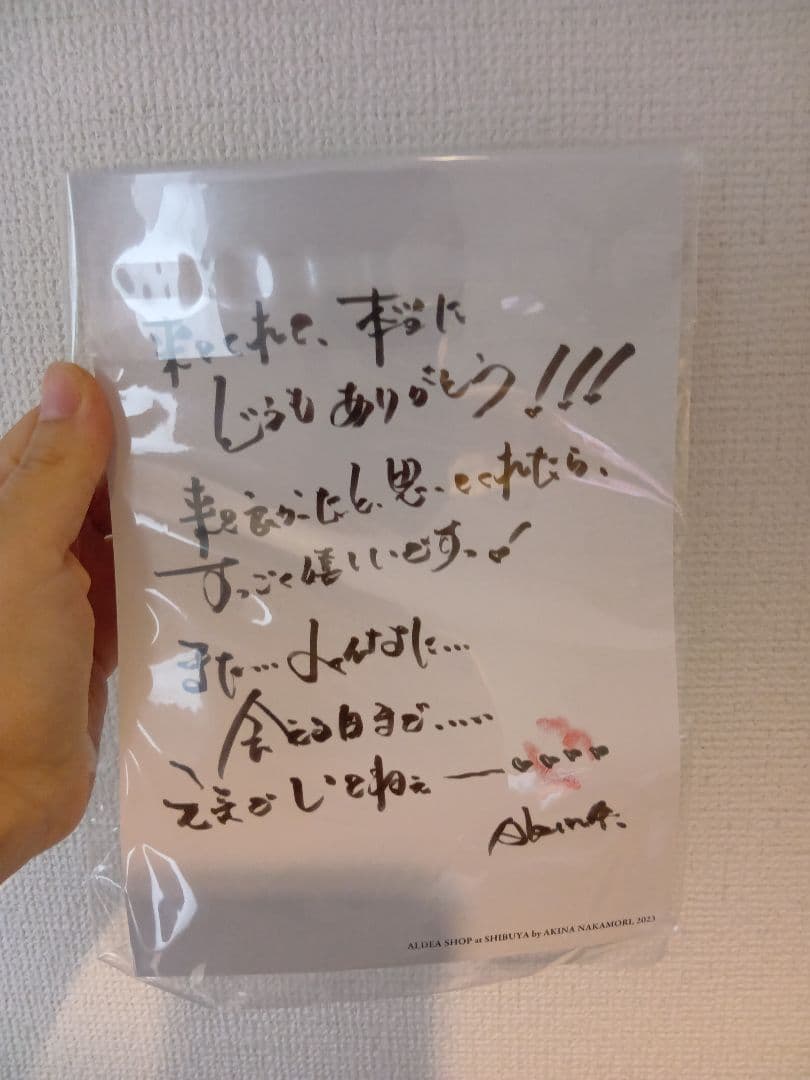 来てくれて、本当に
どうもありがとう!!!
来て良かったと、思ってくれたら、
すっごく嬉しいですっ!
また…みんなに…
会える日まで……
元気でいてねぇー
Akina.
ALDEA SHOP at SHIBUYA by AKINA NAKAMORI 2023